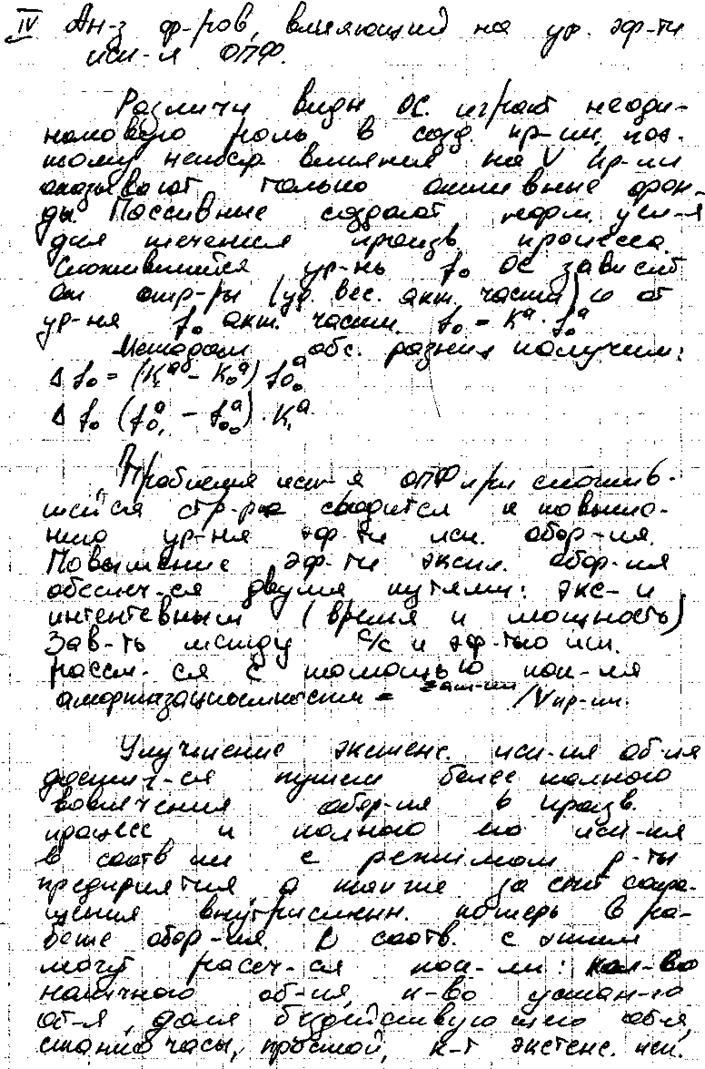 IV Ан-з ф-ров, влияющий на ур. эф-ти
исп-я ОПФ.
Различн виды ОС играют неоди-
наковую роль в созд. пр-ии, поэ-
тому непоср влияния на V пр-ии
оказывают только активные фон-
ды. Пассивные создают норм. усл-я
для течения произв. процесса.
Сложившийся ур-нь fо ОС зависит
от стр-ры (уд. вес. акт. части) и от
ур-ня fо акт. части. fо = Kᵃ · fоᵃ
Методом абс. разниц получим:
Δ fо = (K₁ᵃ - Kоᵃ) fоₒᵃ
Δ fо (fо₁ᵃ - fоₒᵃ) · K₁ᵃ
Проблема исп-я ОПФ при сложив-
шейся стр-ре сводится к повыше-
нию ур-ня эф-ти исп. обор-ия.
Повышение эф-ти экспл. обор-ия
обеспеч-ся двумя путями: экс- и
интентевным (время и мощность)
Зав-ть между с/с и эф-тью исп.
рассм-ся с помощью пок-ля
амортизациоемкости = /Vпр-ии.
Улучшение экстенс. исп-ия об-ия
достиг-ся путем более полного
вовлечения обор-ия в произв.
процесс и полного его исп-ия
в соотв ии с режимом р-ты
предприятия а также за счет сокра-
щения внутрисменн. потерь в ра-
боте обор-ия. В соотв. с этим
могут рассч-ся пок-ли: кол-во
наличного об-ия, к-во устан-го
об-я, доля бездействующего об-я,
станко часы, простой, к-т экстенс. исп.